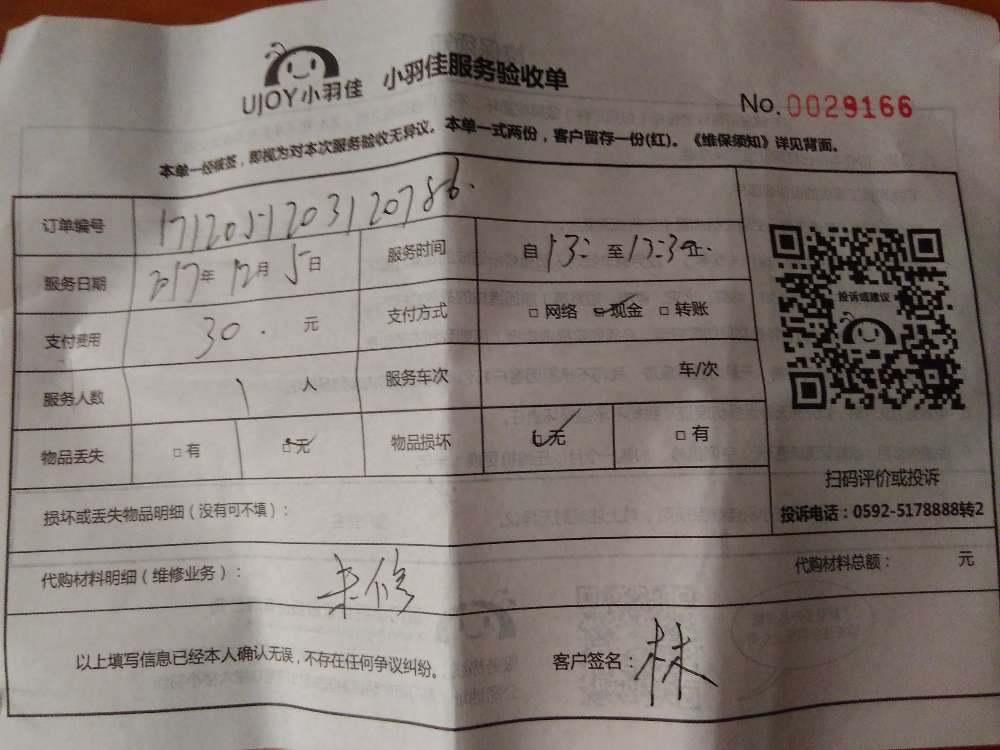 UJOY小羽佳 小羽佳服务验收单
No.0029166
本单一经核签，即视为对本次服务验收无异议。本单一式两份，客户留存一份(红)。《维保须知》详见背面。
订单编号 171205120312078
服务日期 2017年12月5日 服务时间 自13: 至13:30止
支付费用 30. 元 支付方式 □网络 □现金 □转账
服务人数 1 人 服务车次 车/次
物品丢失 □有 □无 物品损坏 □无 □有
投诉或建议
扫码评价或投诉
投诉电话：0592-5178888转2
损坏或丢失物品明细（没有可不填）：
代购材料明细（维修业务）： 未修 代购材料总额： 元
以上填写信息已经本人确认无误，不存在任何争议纠纷。 客户签名：林